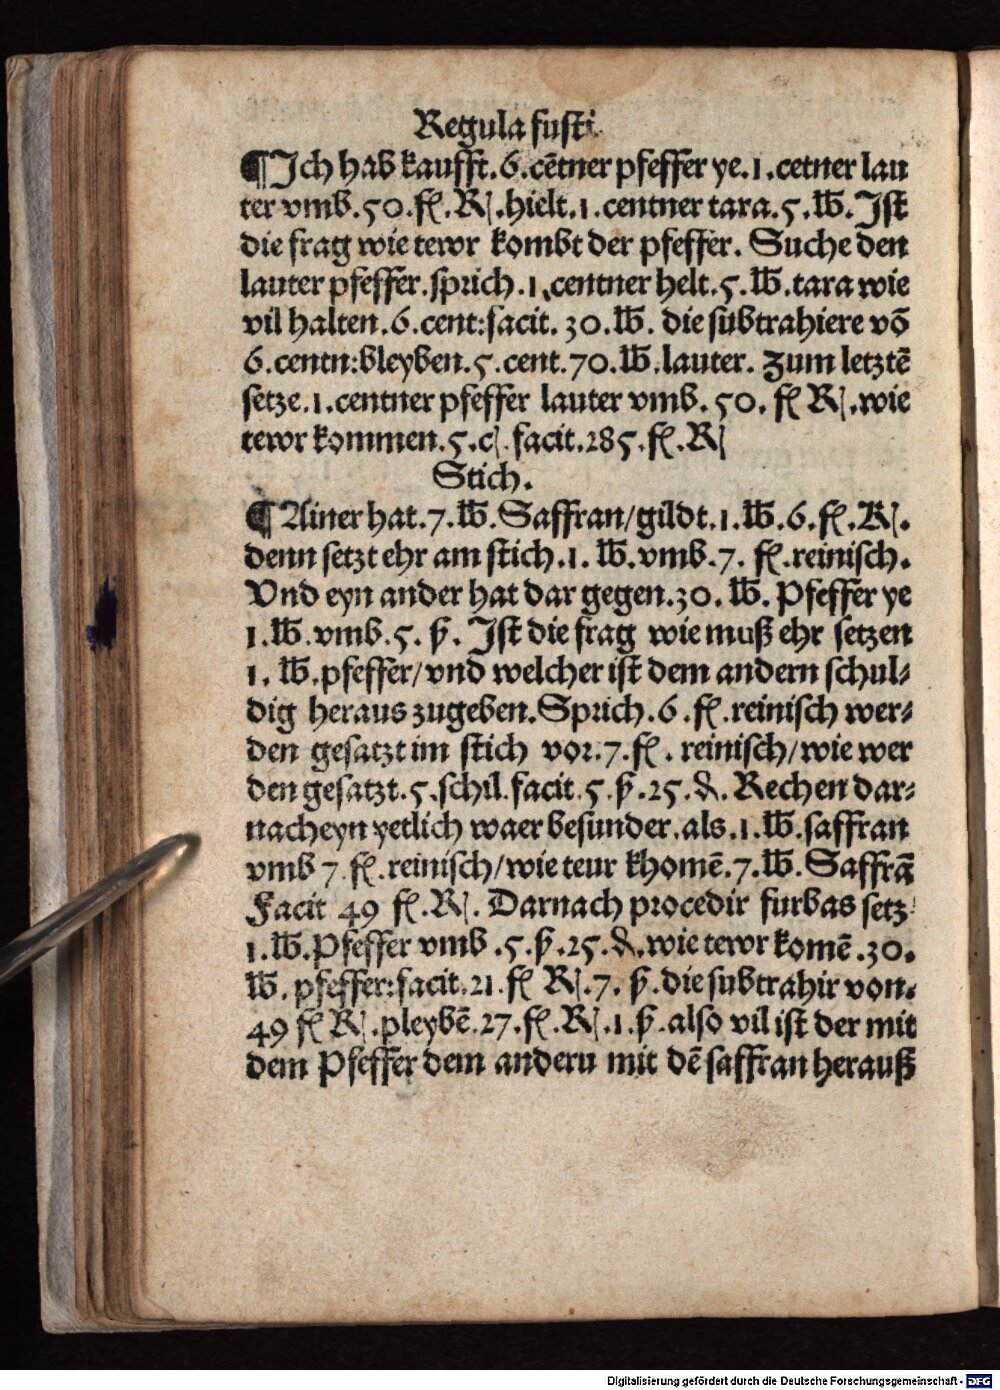 Regula fusti
¶Ich hab kaufft.6.cẽtner pfeffer ye.1.cetner lau
ter vmb.50.fl.R.hielt.1.centner tara.5.lb.Ist
die frag wie tewr kombt der pfeffer. Suche den
lauter pfeffer.sprich.1.centner helt.5.lb.tara wie
vil halten.6.cent:facit.30.lb. die subtrahiere võ
6.centn:bleyben.5.cent.70.lb.lauter. Zum letztẽ
setze.1.centner pfeffer lauter vmb.50.fl R.wie
tewr kommen.5.c. facit.285.fl.R
Stich.
¶Ainer hat.7.lb.Saffran/gildt.1.lb.6.fl.R.
denn setzt ehr am stich.1.lb.vmb.7. fl.reinisch.
Vnd eyn ander hat dar gegen.30.lb. Pfeffer ye
1.lb.vmb.5.ß. Ist die frag wie muß ehr setzen
1.lb.pfeffer/vnd welcher ist dem andern schul-
dig heraus zugeben.Sprich.6.fl.reinisch wer-
den gesatzt im stich vor.7.fl. reinisch/wie wer
den gesatzt.5.schil.facit.5.ß.25.₰.Rechen dar-
nach eyn yetlich waer besunder.als.1.lb.saffran
vmb 7.fl.reinisch/wie teur khomẽ.7.lb.Saffrã
Facit 49 fl.R. Darnach procedir furbas setz
1.lb.Pfeffer vmb.5.ß.25.₰.wie tewr komẽ.30.
lb.pfeffer:facit.21.fl R.7.ß.die subtrahir von.
49 fl R.pleybẽ.27.fl.R.1.ß.also vil ist der mit
dem Pfeffer dem anderu mit dẽ saffran herauß
Digitalisierung gefördert durch die Deutsche Forschungsgemeinschaft - DFG